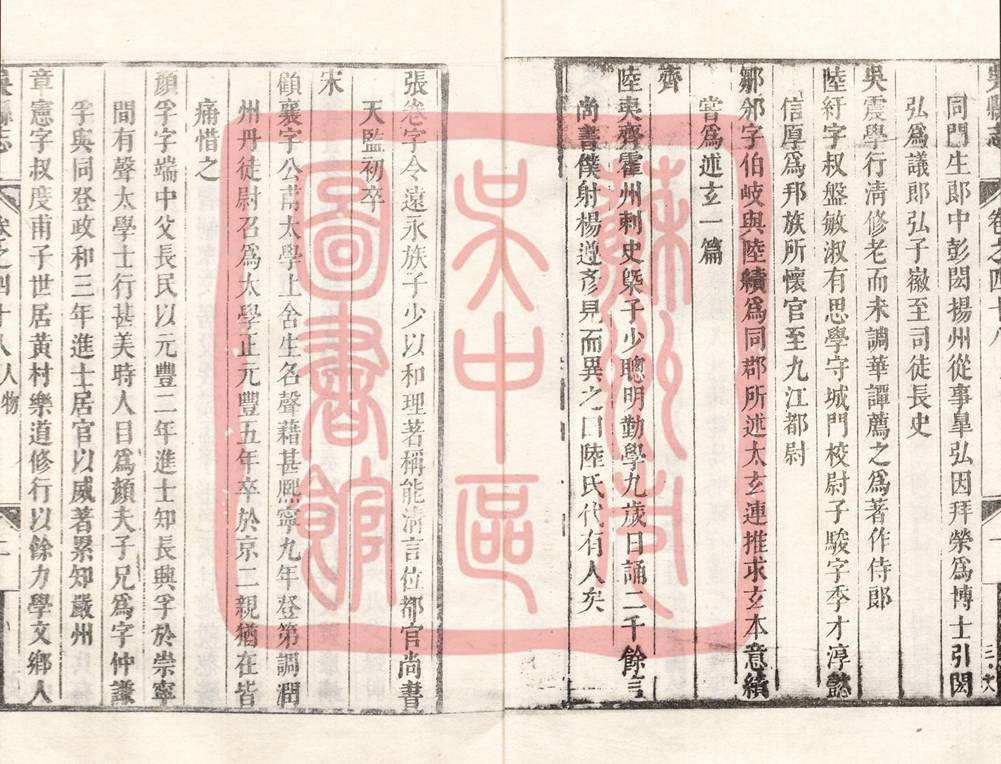 吳縣志
卷之四十八
同門生郎中彭閎揚州從事臯弘因拜榮爲博士引閎
弘爲議郎弘子徽至司徒長史
吳震學行清修老而未調華譚薦之爲著作侍郎
陸紆字叔盤敏淑有思學守城門校尉子駿字季才淳懿
信厚爲邦族所懷官至九江都尉
鄒邠字伯岐與陸績爲同郡所述太玄連推求玄本意績
嘗爲述玄一篇
齊
陸奭齊霍州刺史槩子少聰明勤學九歲日誦二千餘言
尚書僕射楊遵彥見而異之曰陸氏代有人矣
張卷字令遠永族子少以和理著稱能清言位都官尚書
天監初卒
宋
顧襄字公甫太學上舍生名聲藉甚熈寧九年登第調潤
州丹徒尉召爲太學正元豐五年卒於京二親猶在皆
痛惜之
顔孚字端中父長民以元豐二年進士知長興孚於崇寧
間有聲太學士行甚美時人目爲顔夫子兄爲字仲謙
孚與同登政和三年進士居官以威著累知嚴州
章憲字叔度甫子世居黃村樂道修行以餘力學文鄉人
吳縣志
卷之四十八 人物
二
蘇州市
吳中區
圖書館